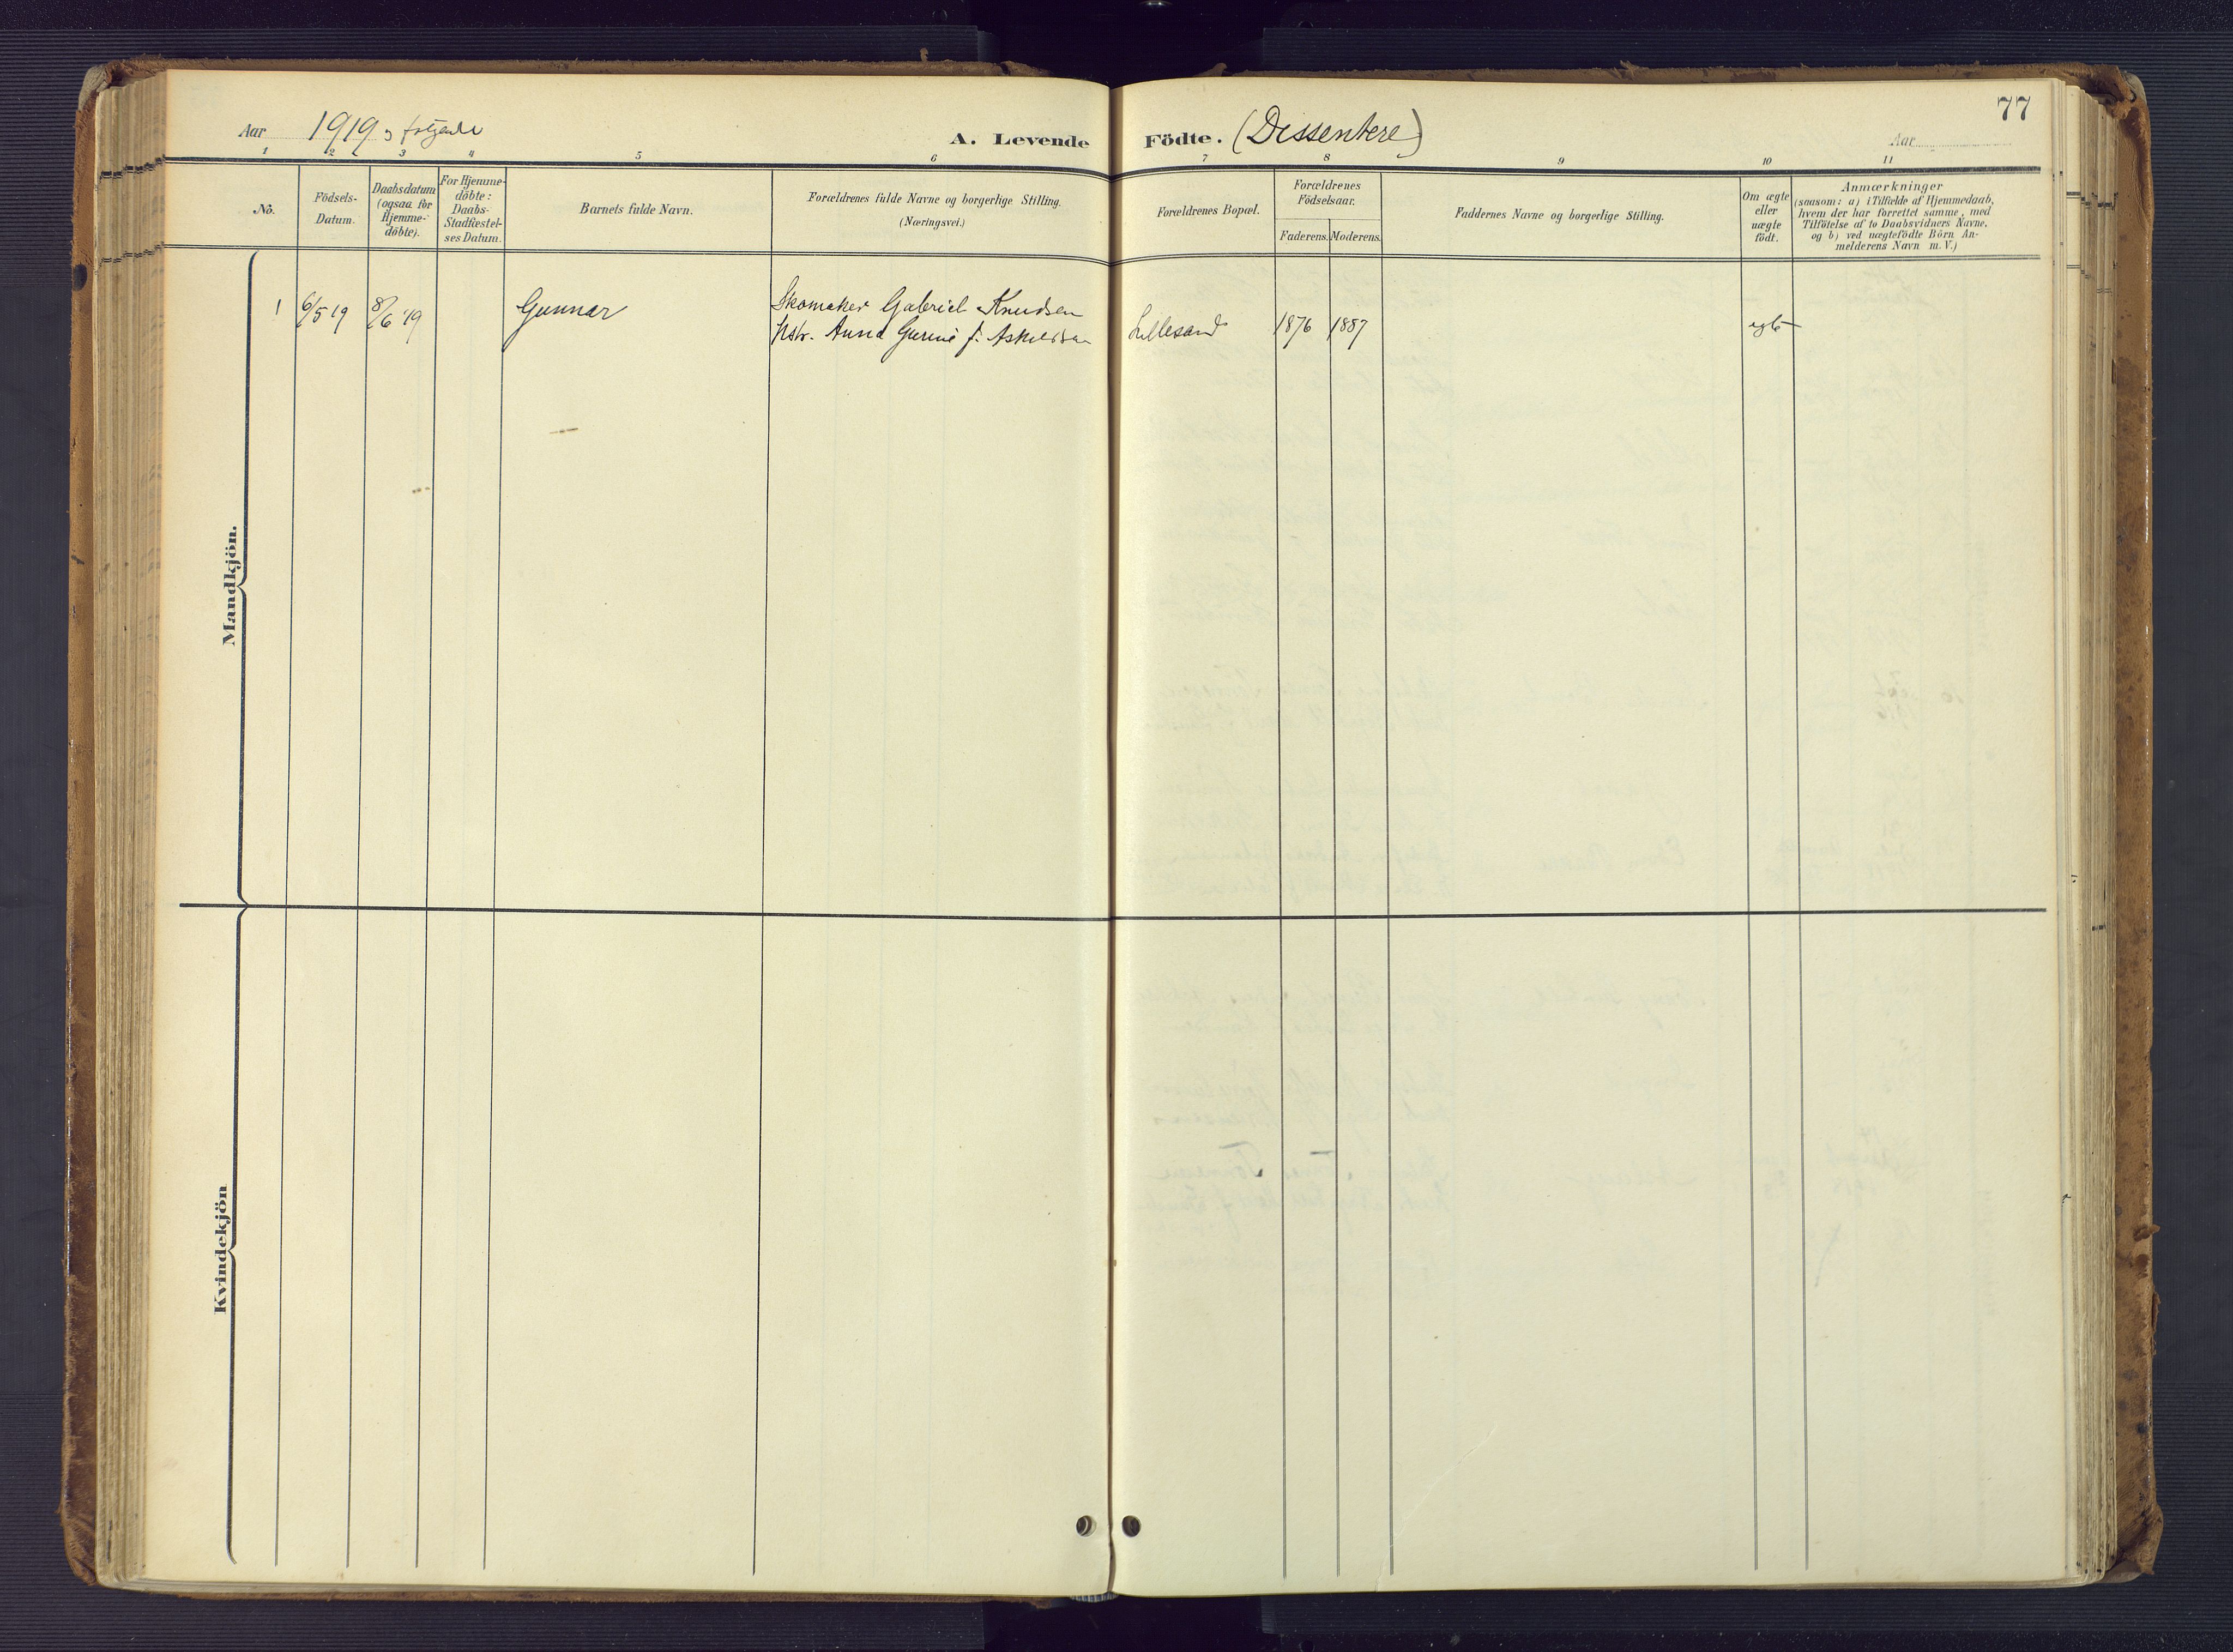 77
Aar 1919 følgende
A. Levende Födte. (Dissentere)
Aar
1 2 3 4 5 6 7 8 9 10 11
No.
Födsels-
Datum.
Daabsdatum
(ogsaa for
Hjemme-
döbte).
For Hjemme-
döbte:
Daabs-
Stadfæstel-
ses Datum.
Barnets fulde Navn.
Forældrenes fulde Navne og borgerlige Stilling.
(Næringsvei.)
Forældrenes Bopæl.
Forældrenes
Födselsaar.
Faderens. Moderens.
Faddernes Navne og borgerlige Stilling.
Om ægte
eller
uægte
födt.
Anmærkninger
(saasom: a) i Tilfælde af Hjemmedaab,
hvem der har forrettet samme, med
Tilföielse af to Daabsvidners Navne,
og b) ved uægtefödte Börn An-
melderens Navn m. V.)
Mandkjön.
1 6/5 19 8/6 19 Gunnar
Skomaker Gabriel Knudsen
Hstr. Anna Gurine f. Askildsen
Lillesand 1876 1887 egte
Kvindekjön